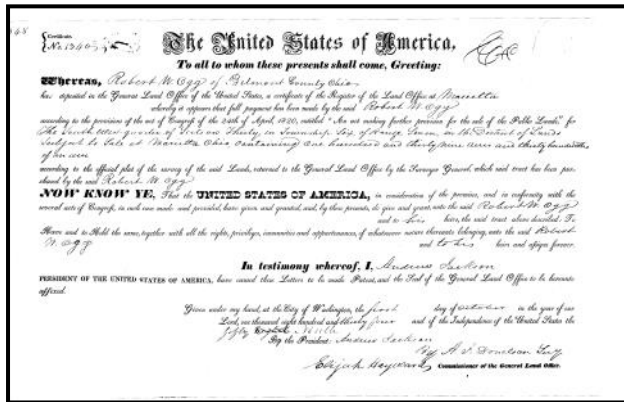 Certificate
No. 1340
The United States of America,
To all to whom these presents shall come, Greeting:
Whereas, Robert W. Ogg of Belmont County Ohio
has deposited in the General Land Office of the United States, a certificate of the Register of the Land Office at Marietta
whereby it appears that full payment has been made by the said Robert W. Ogg
according to the provisions of the act of Congress of the 24th of April, 1820, entitled "An act making further provision for the sale of the Public Lands," for
The South West quarter of Section Thirty, in Township Six, of Range Seven, in the District of Lands
Subject to Sale at Marietta Ohio, containing one hundred and thirty nine acres and thirty hundredths
of an acre
according to the official plat of the survey of the said Lands, returned to the General Land Office by the Surveyor General, which said tract has been pur-
chased by the said Robert W. Ogg
NOW KNOW YE, That the UNITED STATES OF AMERICA, in consideration of the premises, and in conformity with the
several acts of Congress, in such case made and provided, have given and granted, and, by these presents, do give and grant, unto the said Robert W. Ogg
and to his heirs, the said tract above described: To
Have and to Hold the same, together with all the rights, privileges, immunities and appurtenances, of whatsoever nature thereunto belonging, unto the said Robert
W. Ogg and to his heirs and assigns forever.
In testimony whereof, I, Andrew Jackson
PRESIDENT OF THE UNITED STATES OF AMERICA, have caused these Letters to be made Patent, and the Seal of the General Land Office to be hereunto
affixed.
Given under my hand, at the City of Washington, the first day of October in the year of our
Lord, one thousand eight hundred and thirty four and of the Independence of the United States the
fifty Ninth
By the President: Andrew Jackson
By A. J. Donelson Secy
Elijah Hayward Commissioner of the General Land Office.